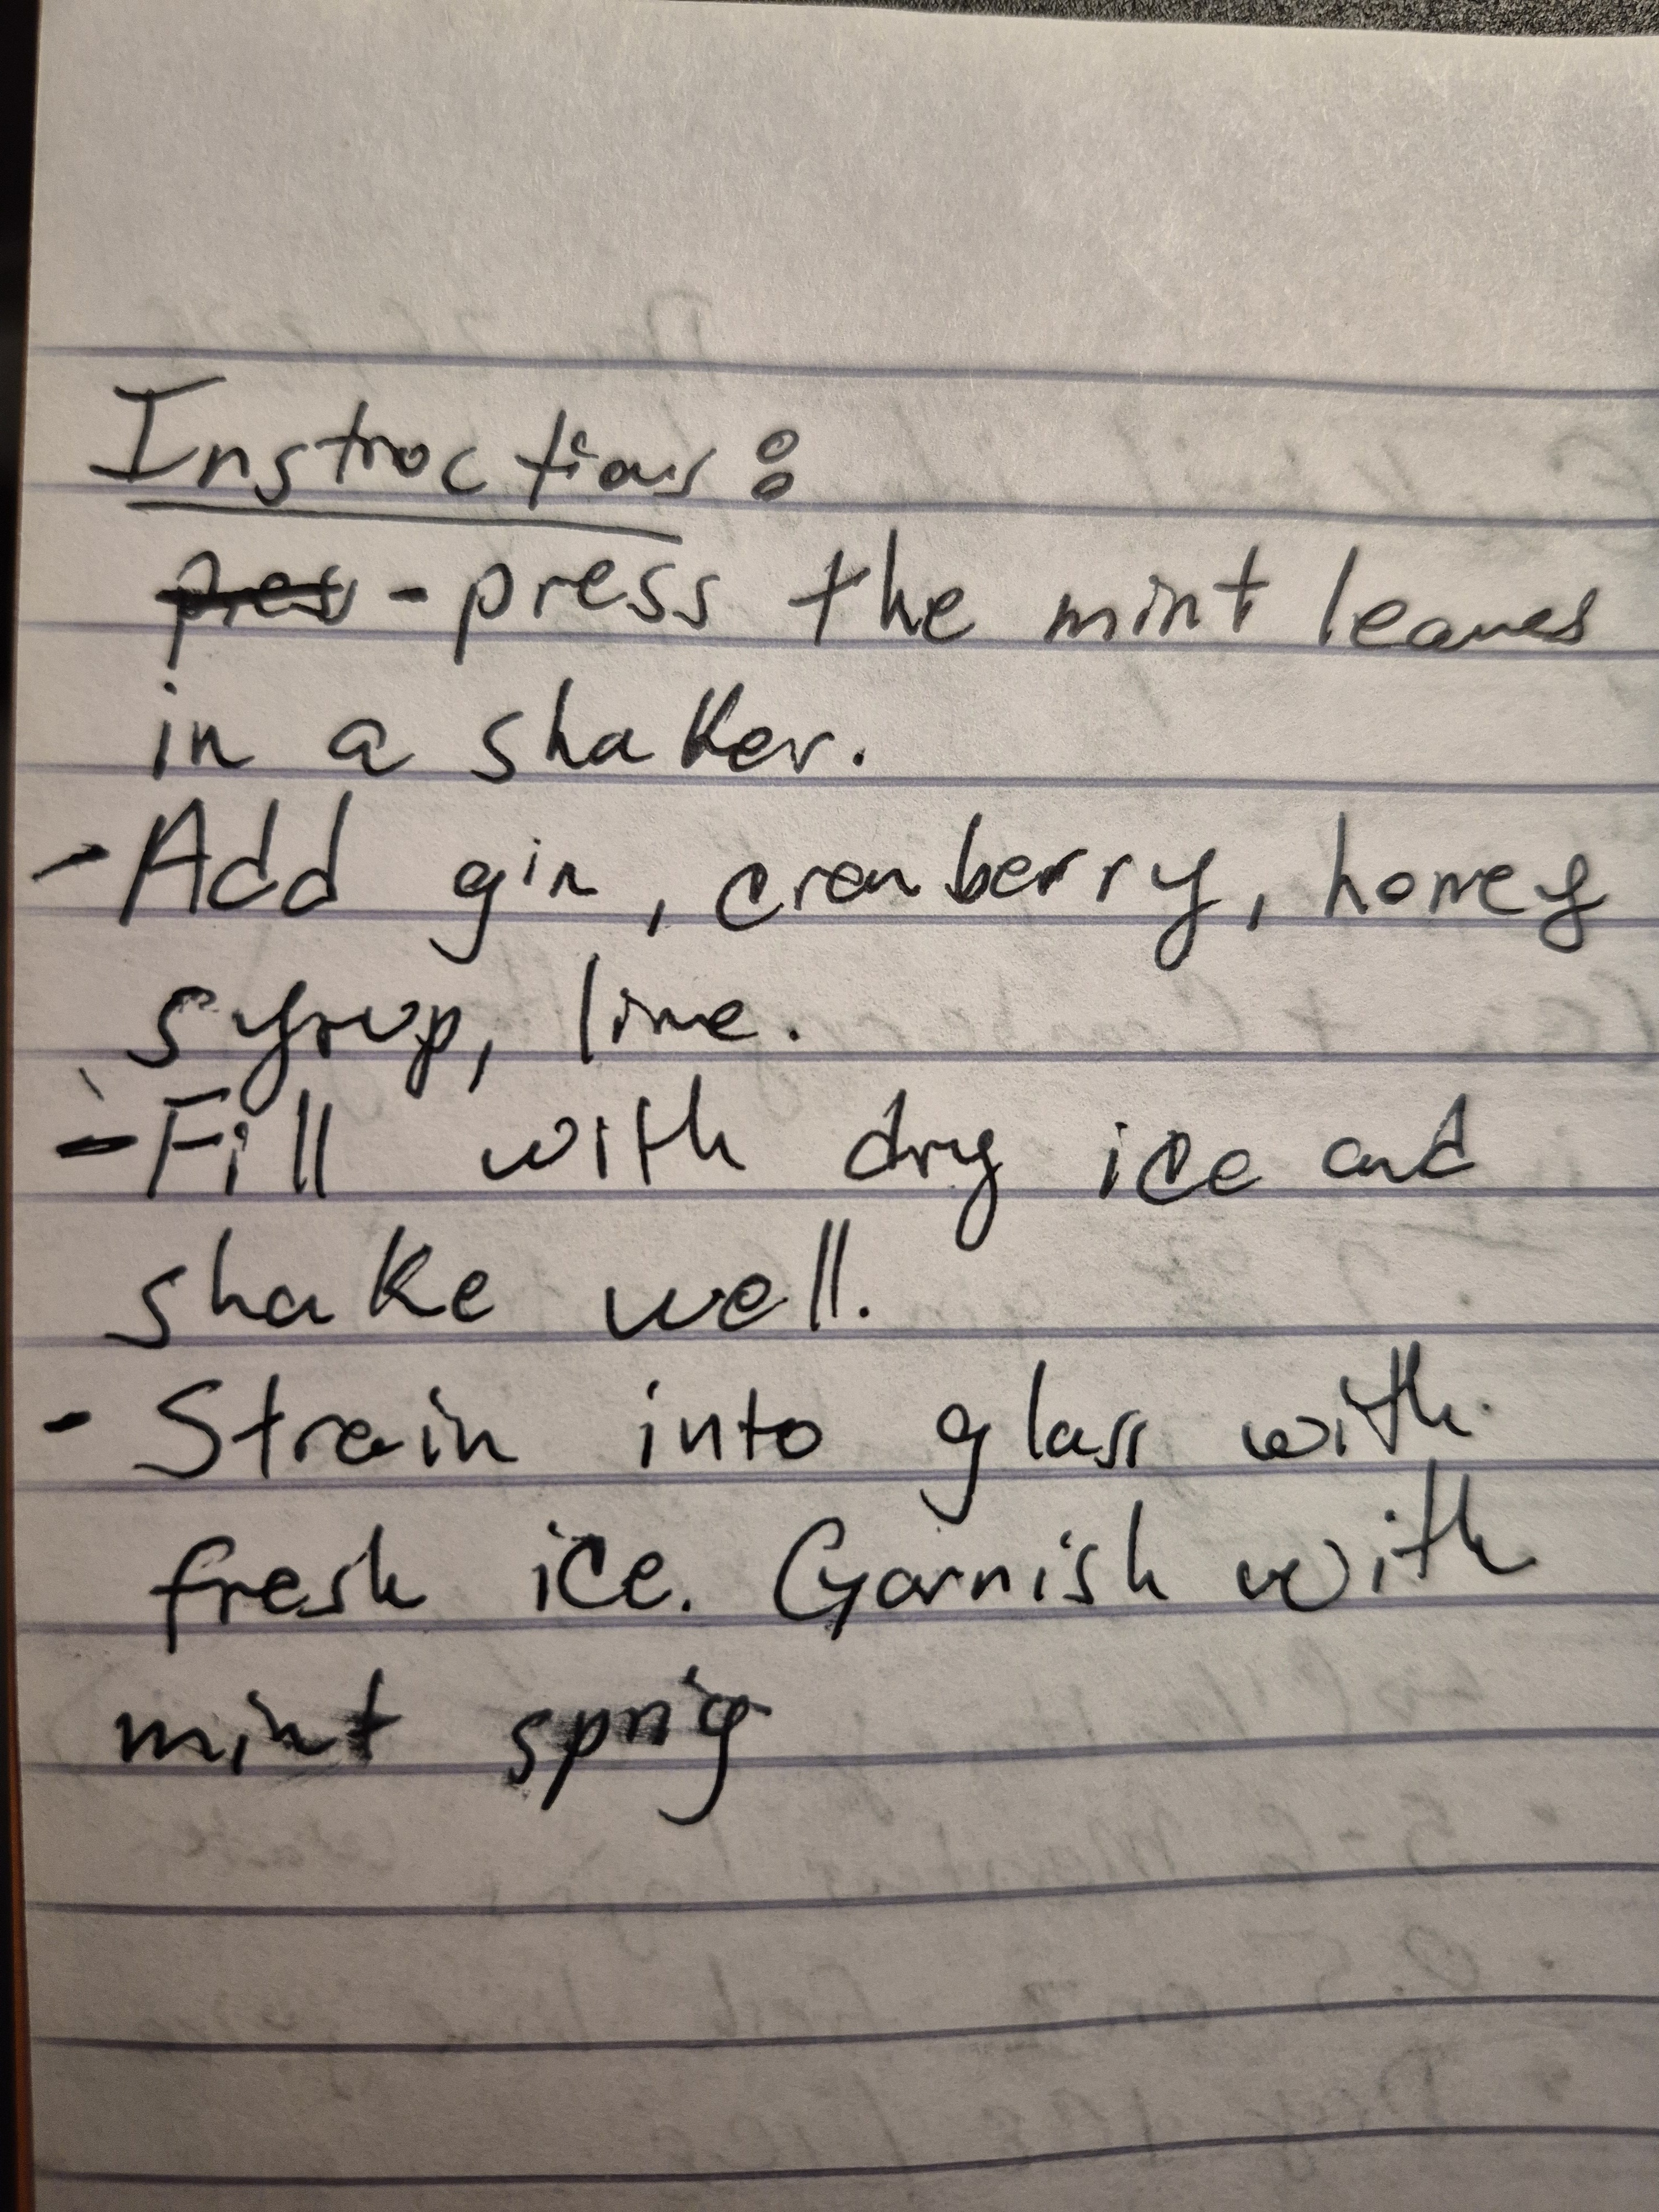 Instructions:
pres - press the mint leaves
in a shaker.
- Add gin, cranberry, honey
syrup, lime.
- Fill with dry ice and
shake well.
- Strain into glass with
fresh ice. Garnish with
mint sprig